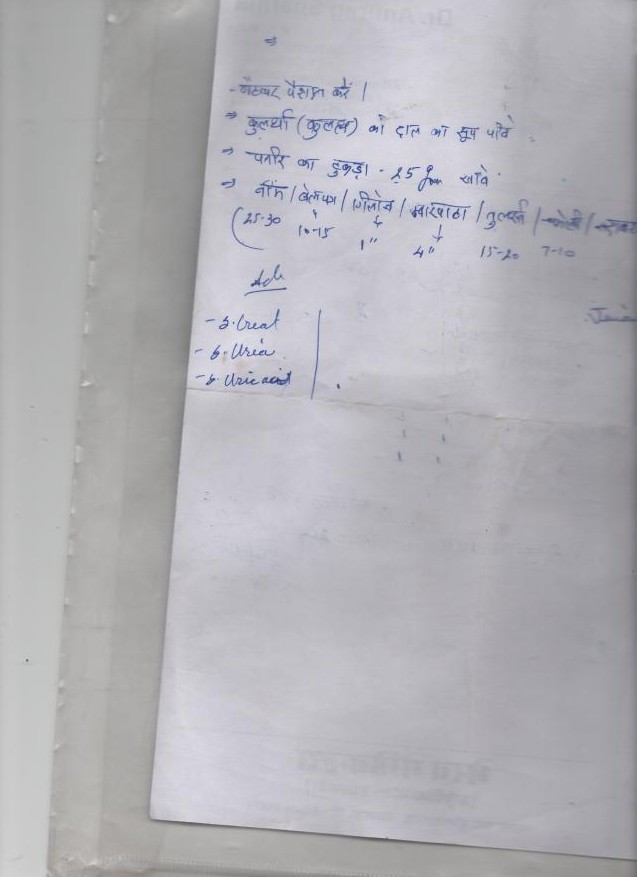 ⇒
- बैठकर पेशाब करें |
⇒ कुलथी (कुलत्थ) की दाल का सूप पीवे
⇒ पनीर का टुकड़ा - 25 gm खावे
⇒ नीम / बेलपत्र / गिलोय / ग्वारपाठा / तुलसी /
(25-30 10-15 1" 4" 15-20 7-10
Adv
- S. Creat
- S. Urea
- S. Uric acid